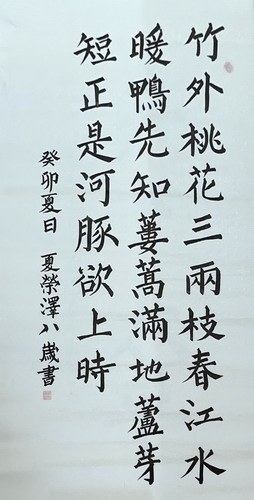 竹外桃花三兩枝春江水
暖鴨先知蔞蒿滿地蘆芽
短正是河豚欲上時
癸卯夏日 夏榮澤八歲書